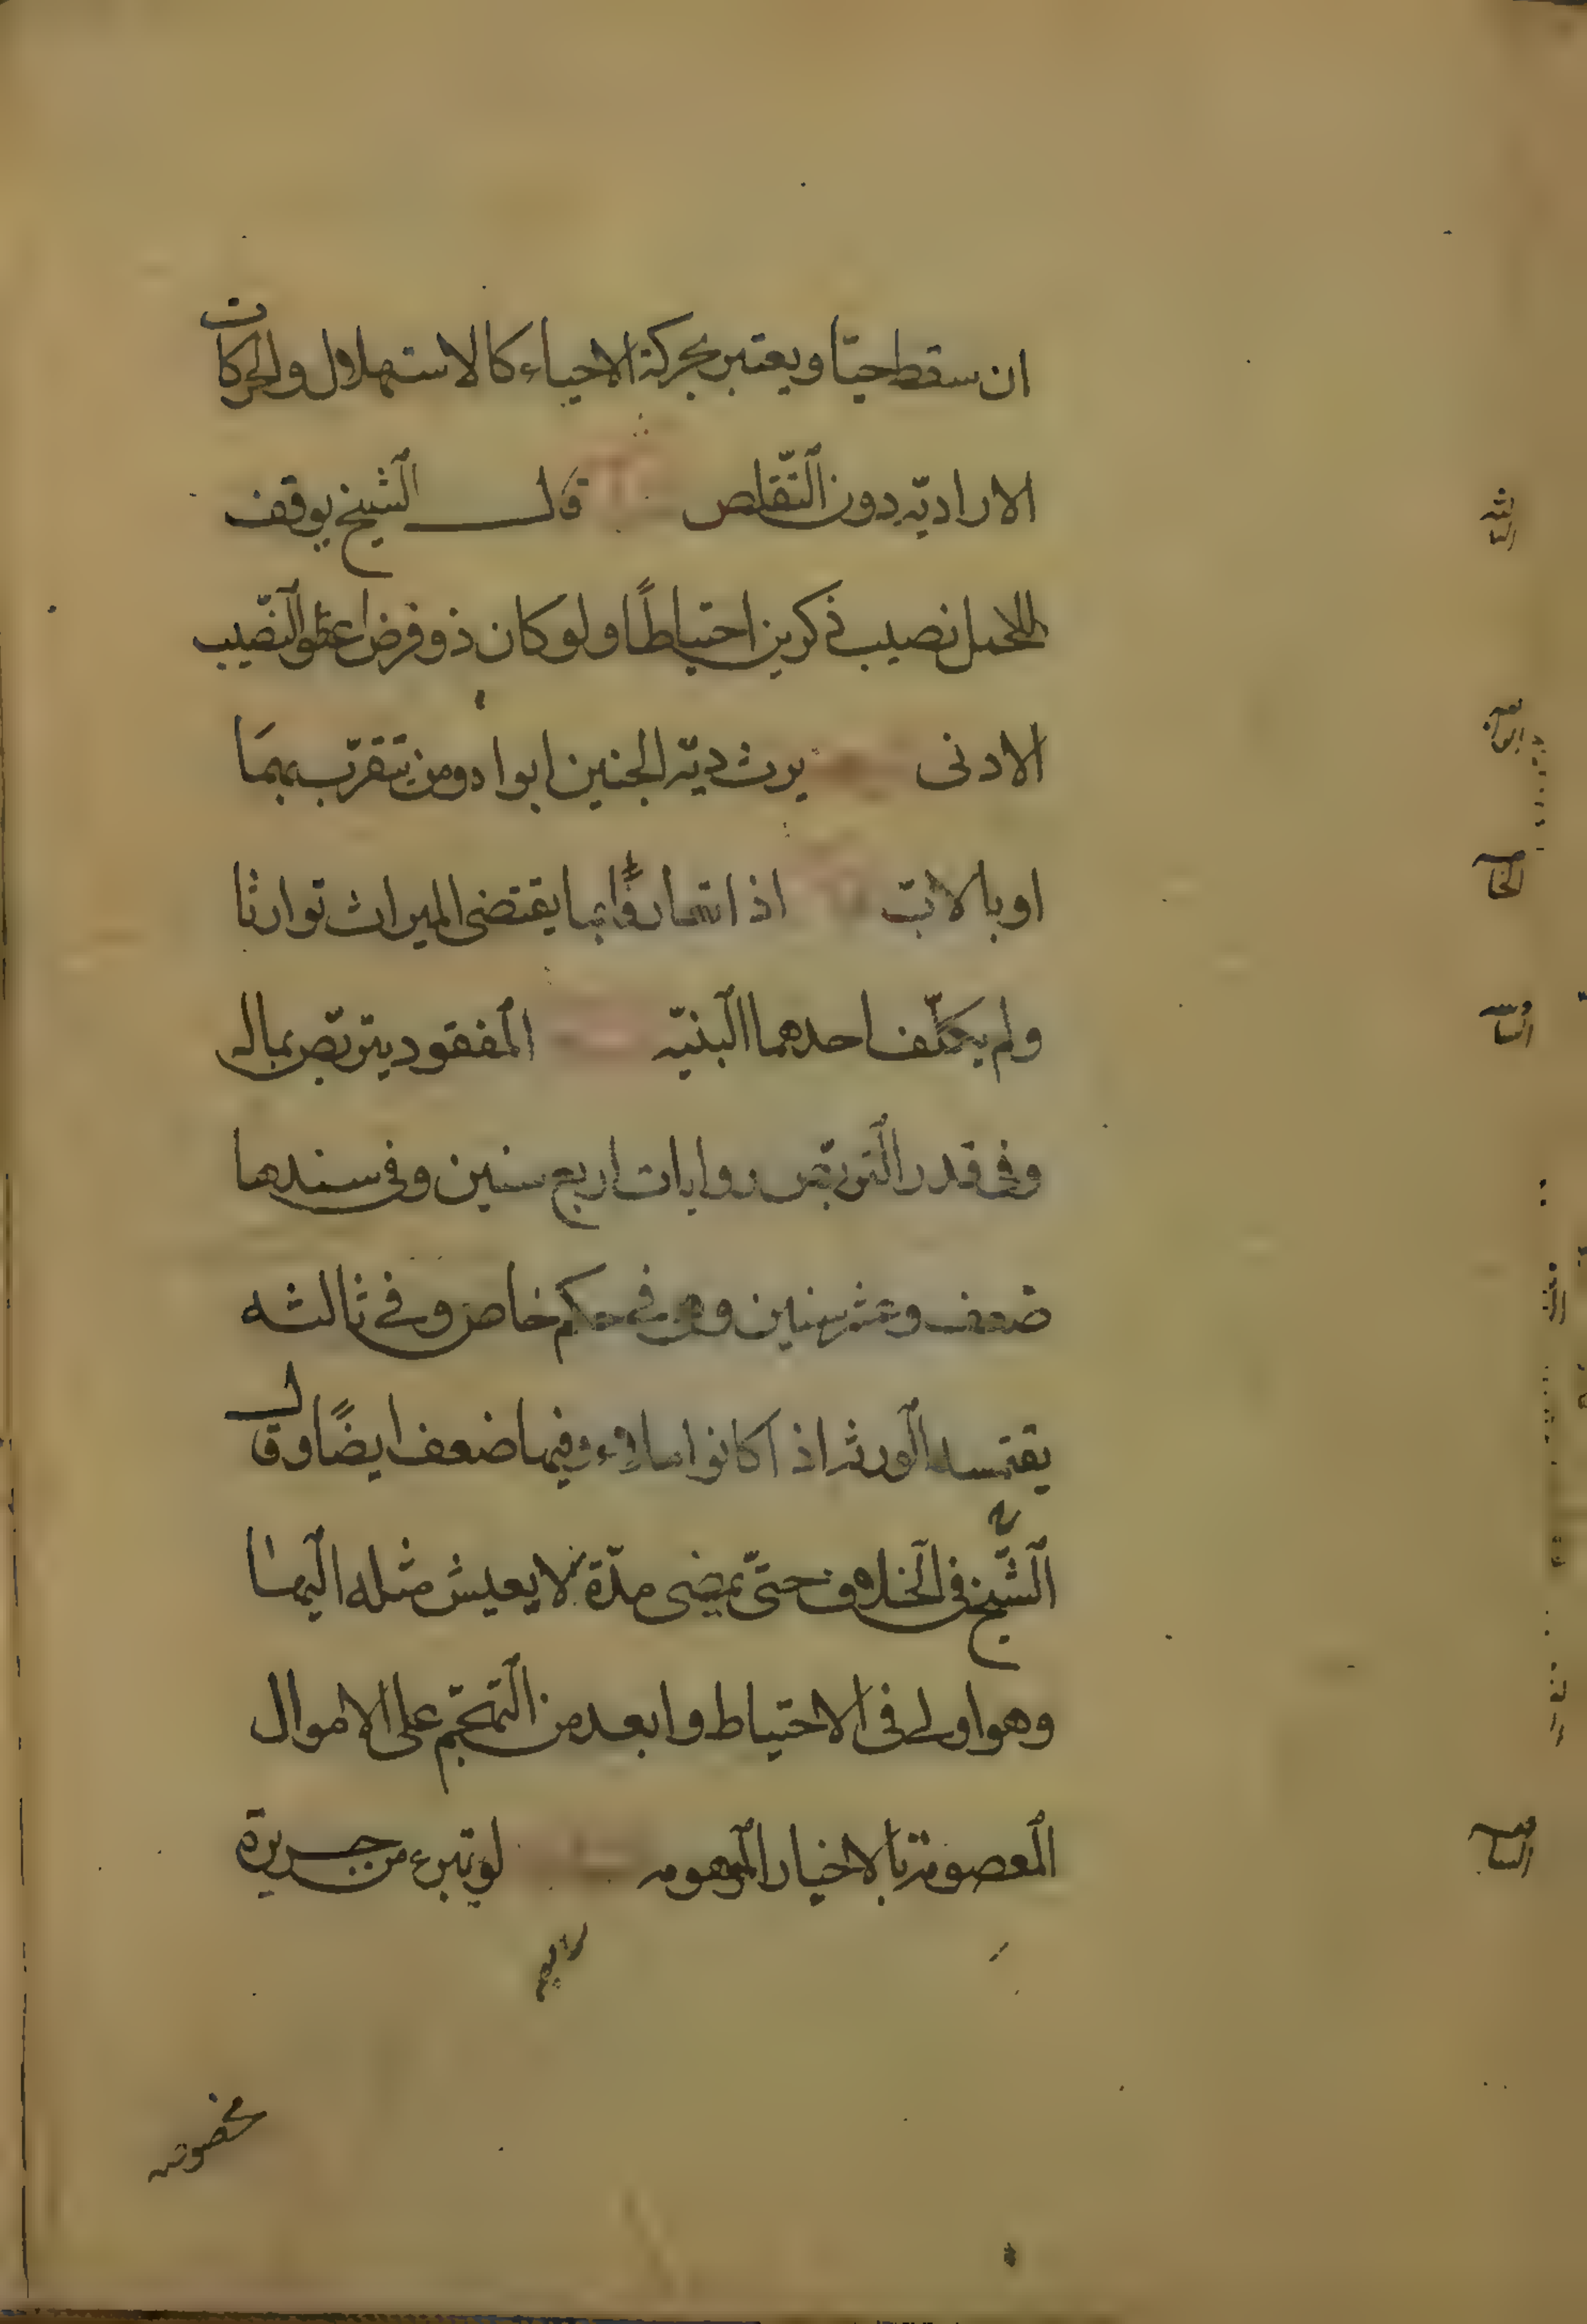 ان سقط حيّا ويعتبر بحركة الاحياء كالاستهلال والحركات
الاراديّه دون التّقلص قال الشيخ يوقف
للحمل نصيب ذكرين احتياطًا ولو كان ذو فرض اعطوا النّصيب
الادنى يرث ديّة الجنين ابواه ومن يتقرّب بهمَا
او بالاب اذا تعارفا بما يقتضى الميراث توارثا
ولم يكلّف احدهما البنيّه المفقود يتربّص بماله
وفى قدر التربّص روايات اربع سنين وفى سندها
ضعف وعشر سنين وهى فى حكم خاص وفى ثالثه
يقتسمه الورثه اذا كانوا ملاء وفيها ضعف ايضًا وقال
الشّيخ فى الخلاف حتىّ يمضى مدّة لا يعيش مثله اليها
وهو اولى فى الاحتياط وابعد من التّهجّم على الاموال
المعصومة بالاخبار الموهومه لو تبرء من جريرة